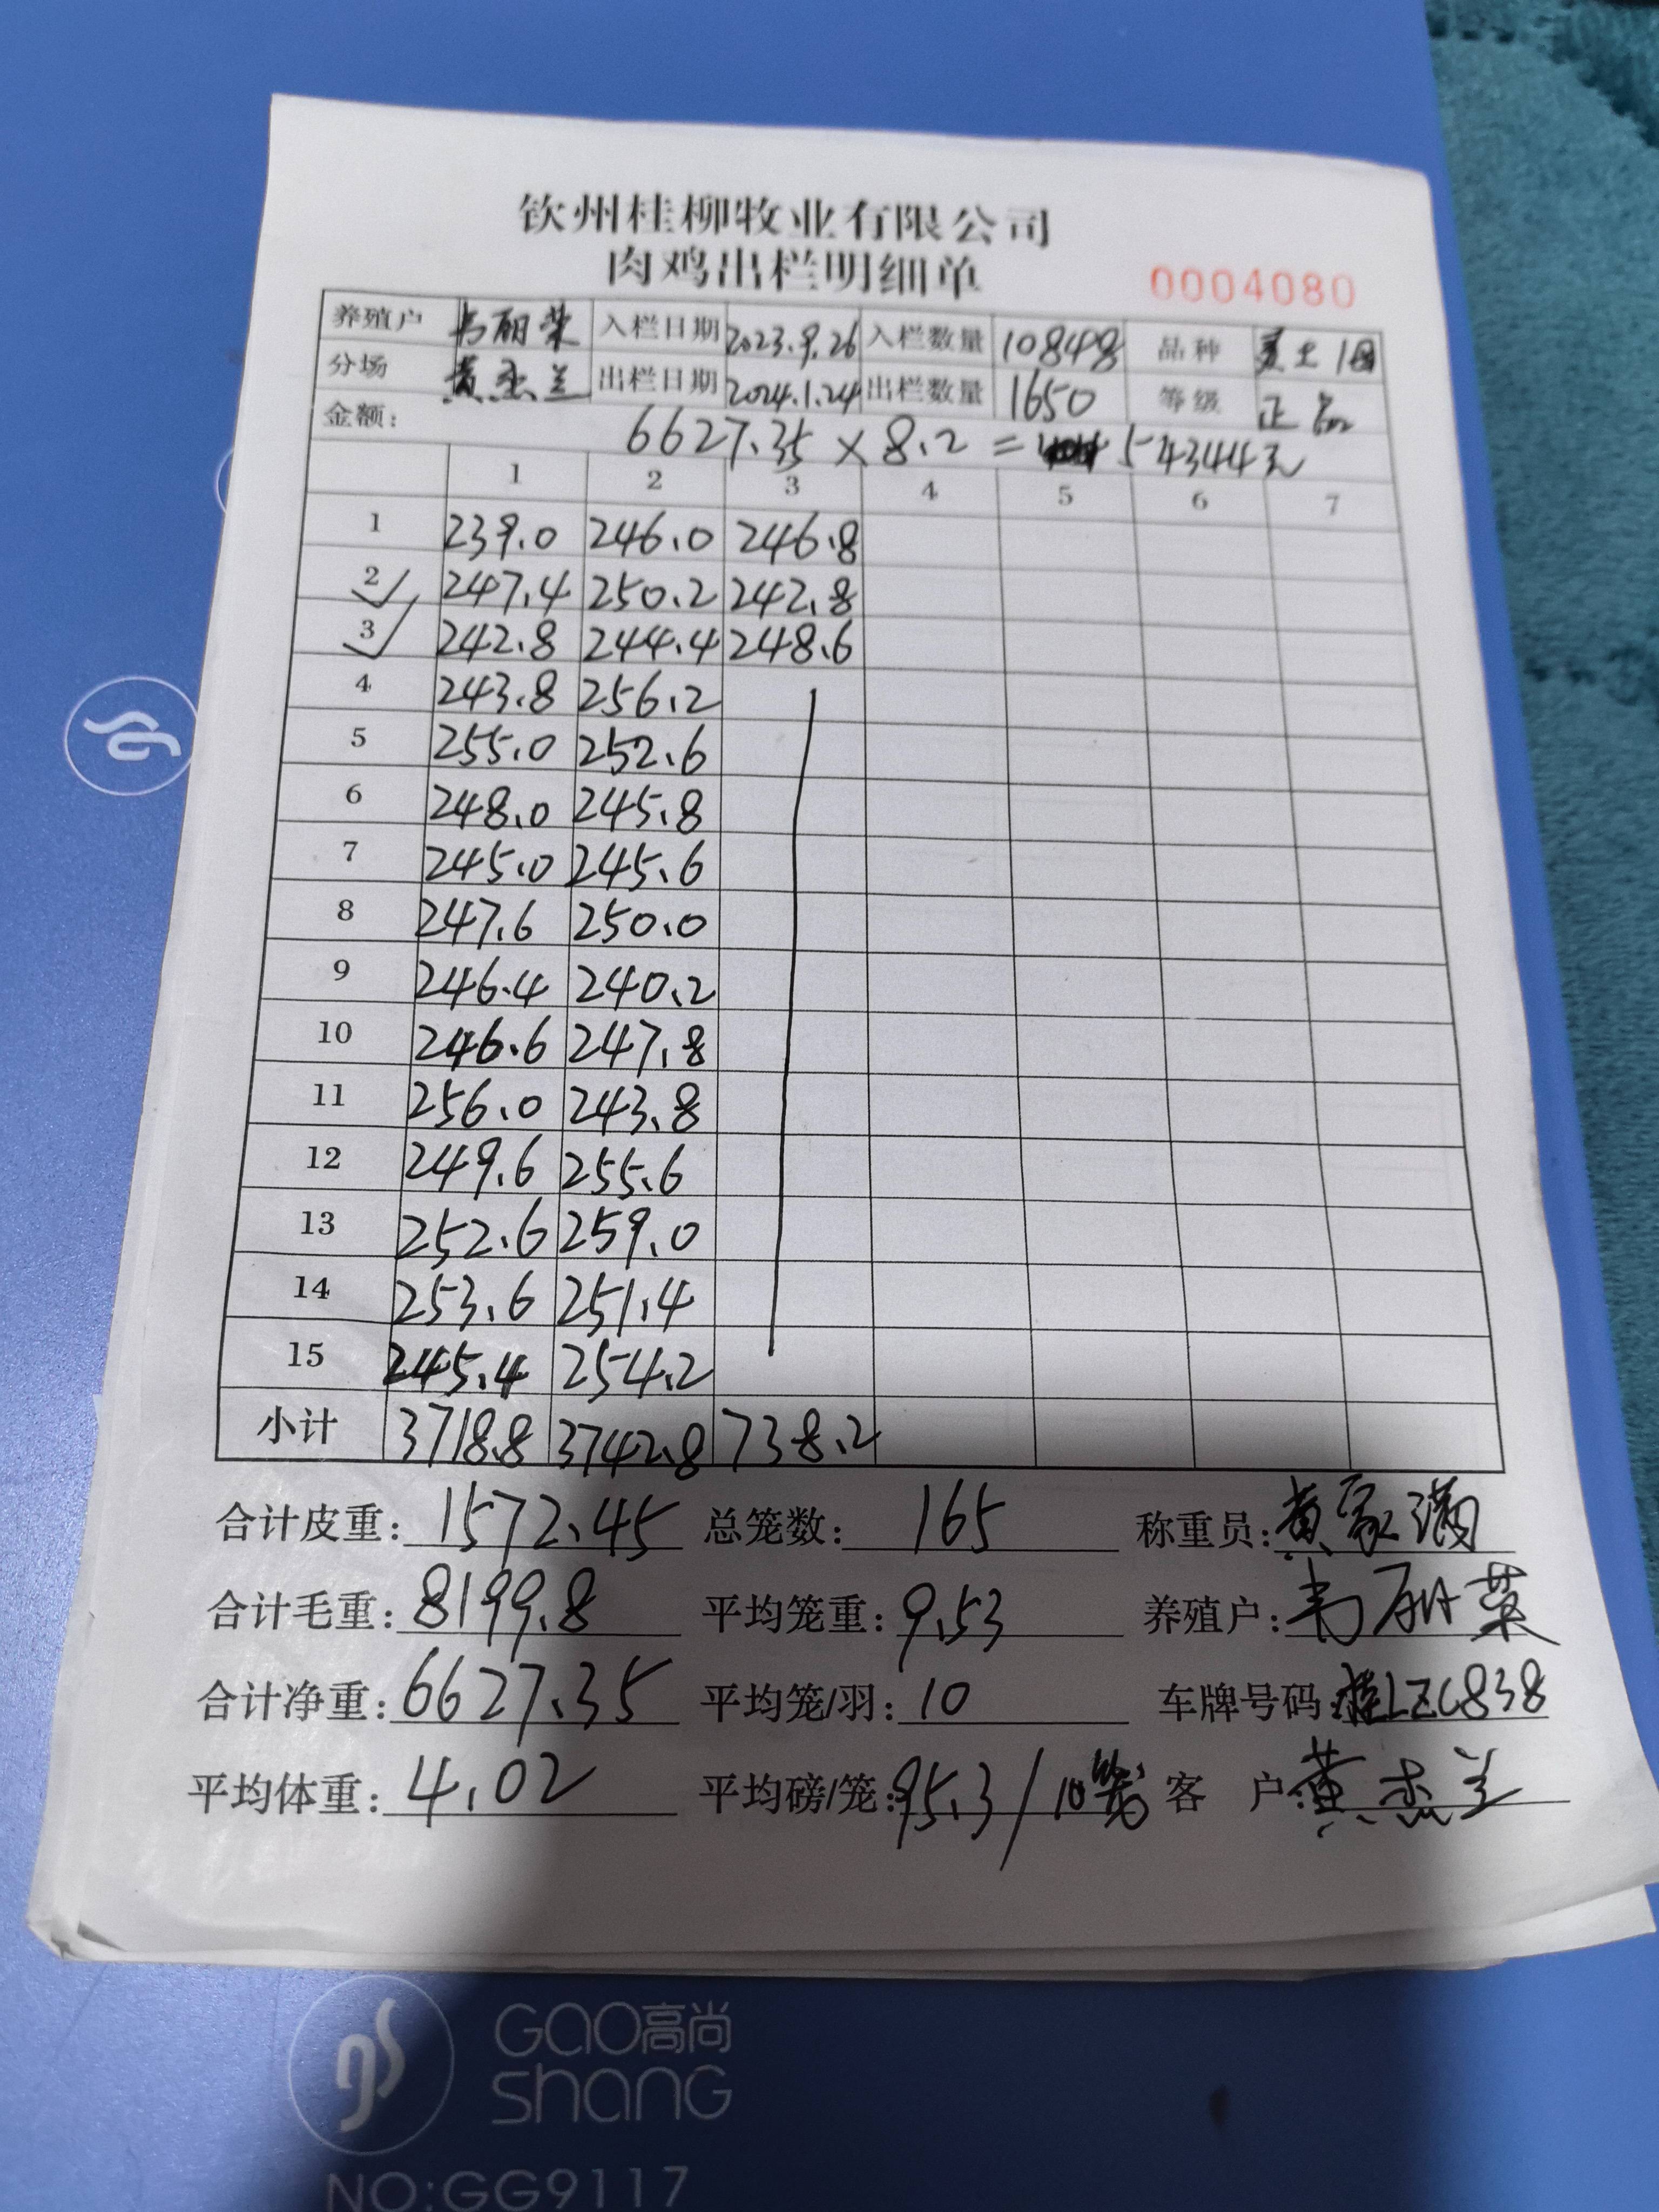 钦州桂柳牧业有限公司
肉鸡出栏明细单 0004080
养殖户 韦丽菜 入栏日期 2023.9.26 入栏数量 10848 品种
分场 黄杰兰 出栏日期 2024.1.24 出栏数量 1650 等级 正品
金额: 6627.35 × 8.2 = 54344元
1 2 3 4 5 6 7
1 239.0 246.0 246.8
2 247.4 250.2 242.8
3 242.8 244.4 248.6
4 243.8 256.2
5 255.0 252.6
6 248.0 245.8
7 245.0 245.6
8 247.6 250.0
9 246.4 240.2
10 246.6 247.8
11 256.0 243.8
12 249.6 255.6
13 252.6 259.0
14 253.6 251.4
15 245.4 254.2
小计 3718.8 3742.8 738.2
合计皮重: 1572.45 总笼数: 165 称重员: 黄家满
合计毛重: 8199.8 平均笼重: 9.53 养殖户: 韦丽菜
合计净重: 6627.35 平均笼/羽: 10 车牌号码: 桂LZC838
平均体重: 4.02 平均磅/笼: 95.3/10笼 客户: 黄杰兰
GAO高尚
shang
NO:GG9117